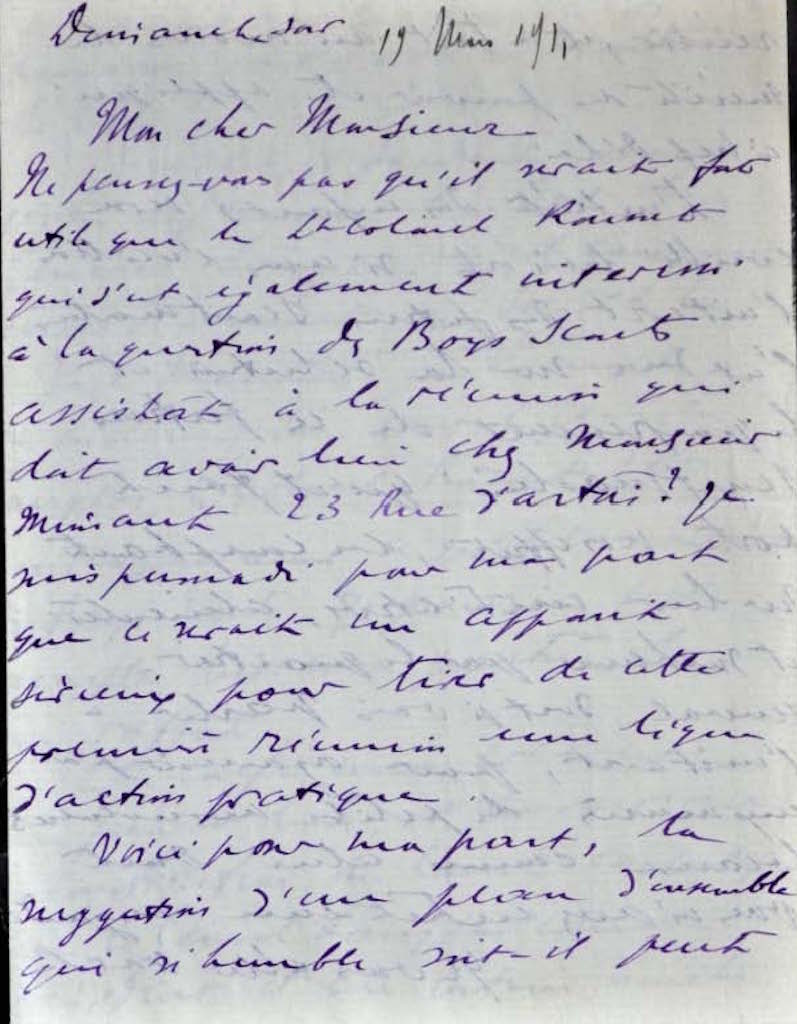 Dimanche soir 19 Mars 1911
Mon cher Monsieur
Ne pensez-vous pas qu'il serait fort
utile que le Lt Colonel Royet
qui s'est également intéressé
à la question des Boys Scouts
assistât à la réunion qui
doit avoir lieu chez Monsieur
23 Rue d'artois? je
suis persuadé pour ma part
que ce serait un appoint
sérieux pour tirer de cette
première réunion une ligne
d'action pratique.
Voici pour ma part, la
suggestion d'un plan d'ensemble
qui si humble soit-il peut